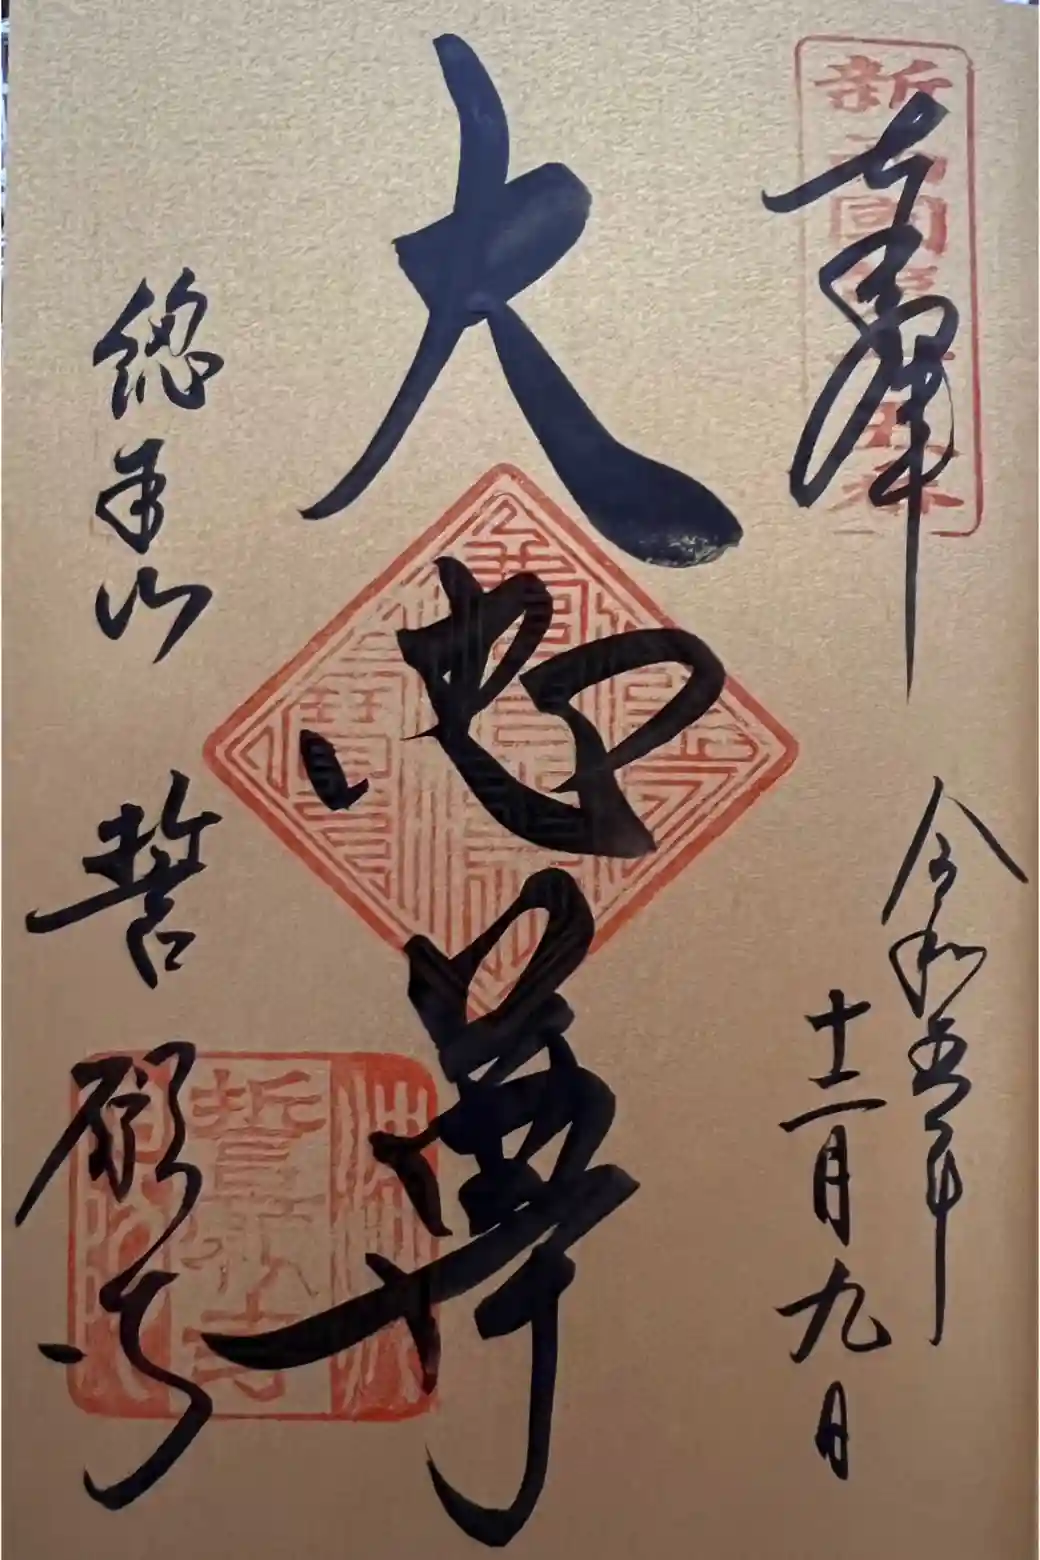 新西国第十五番
奉拝
令和五年
十二月九日
大悲尊
總本山 誓願寺
誓願寺